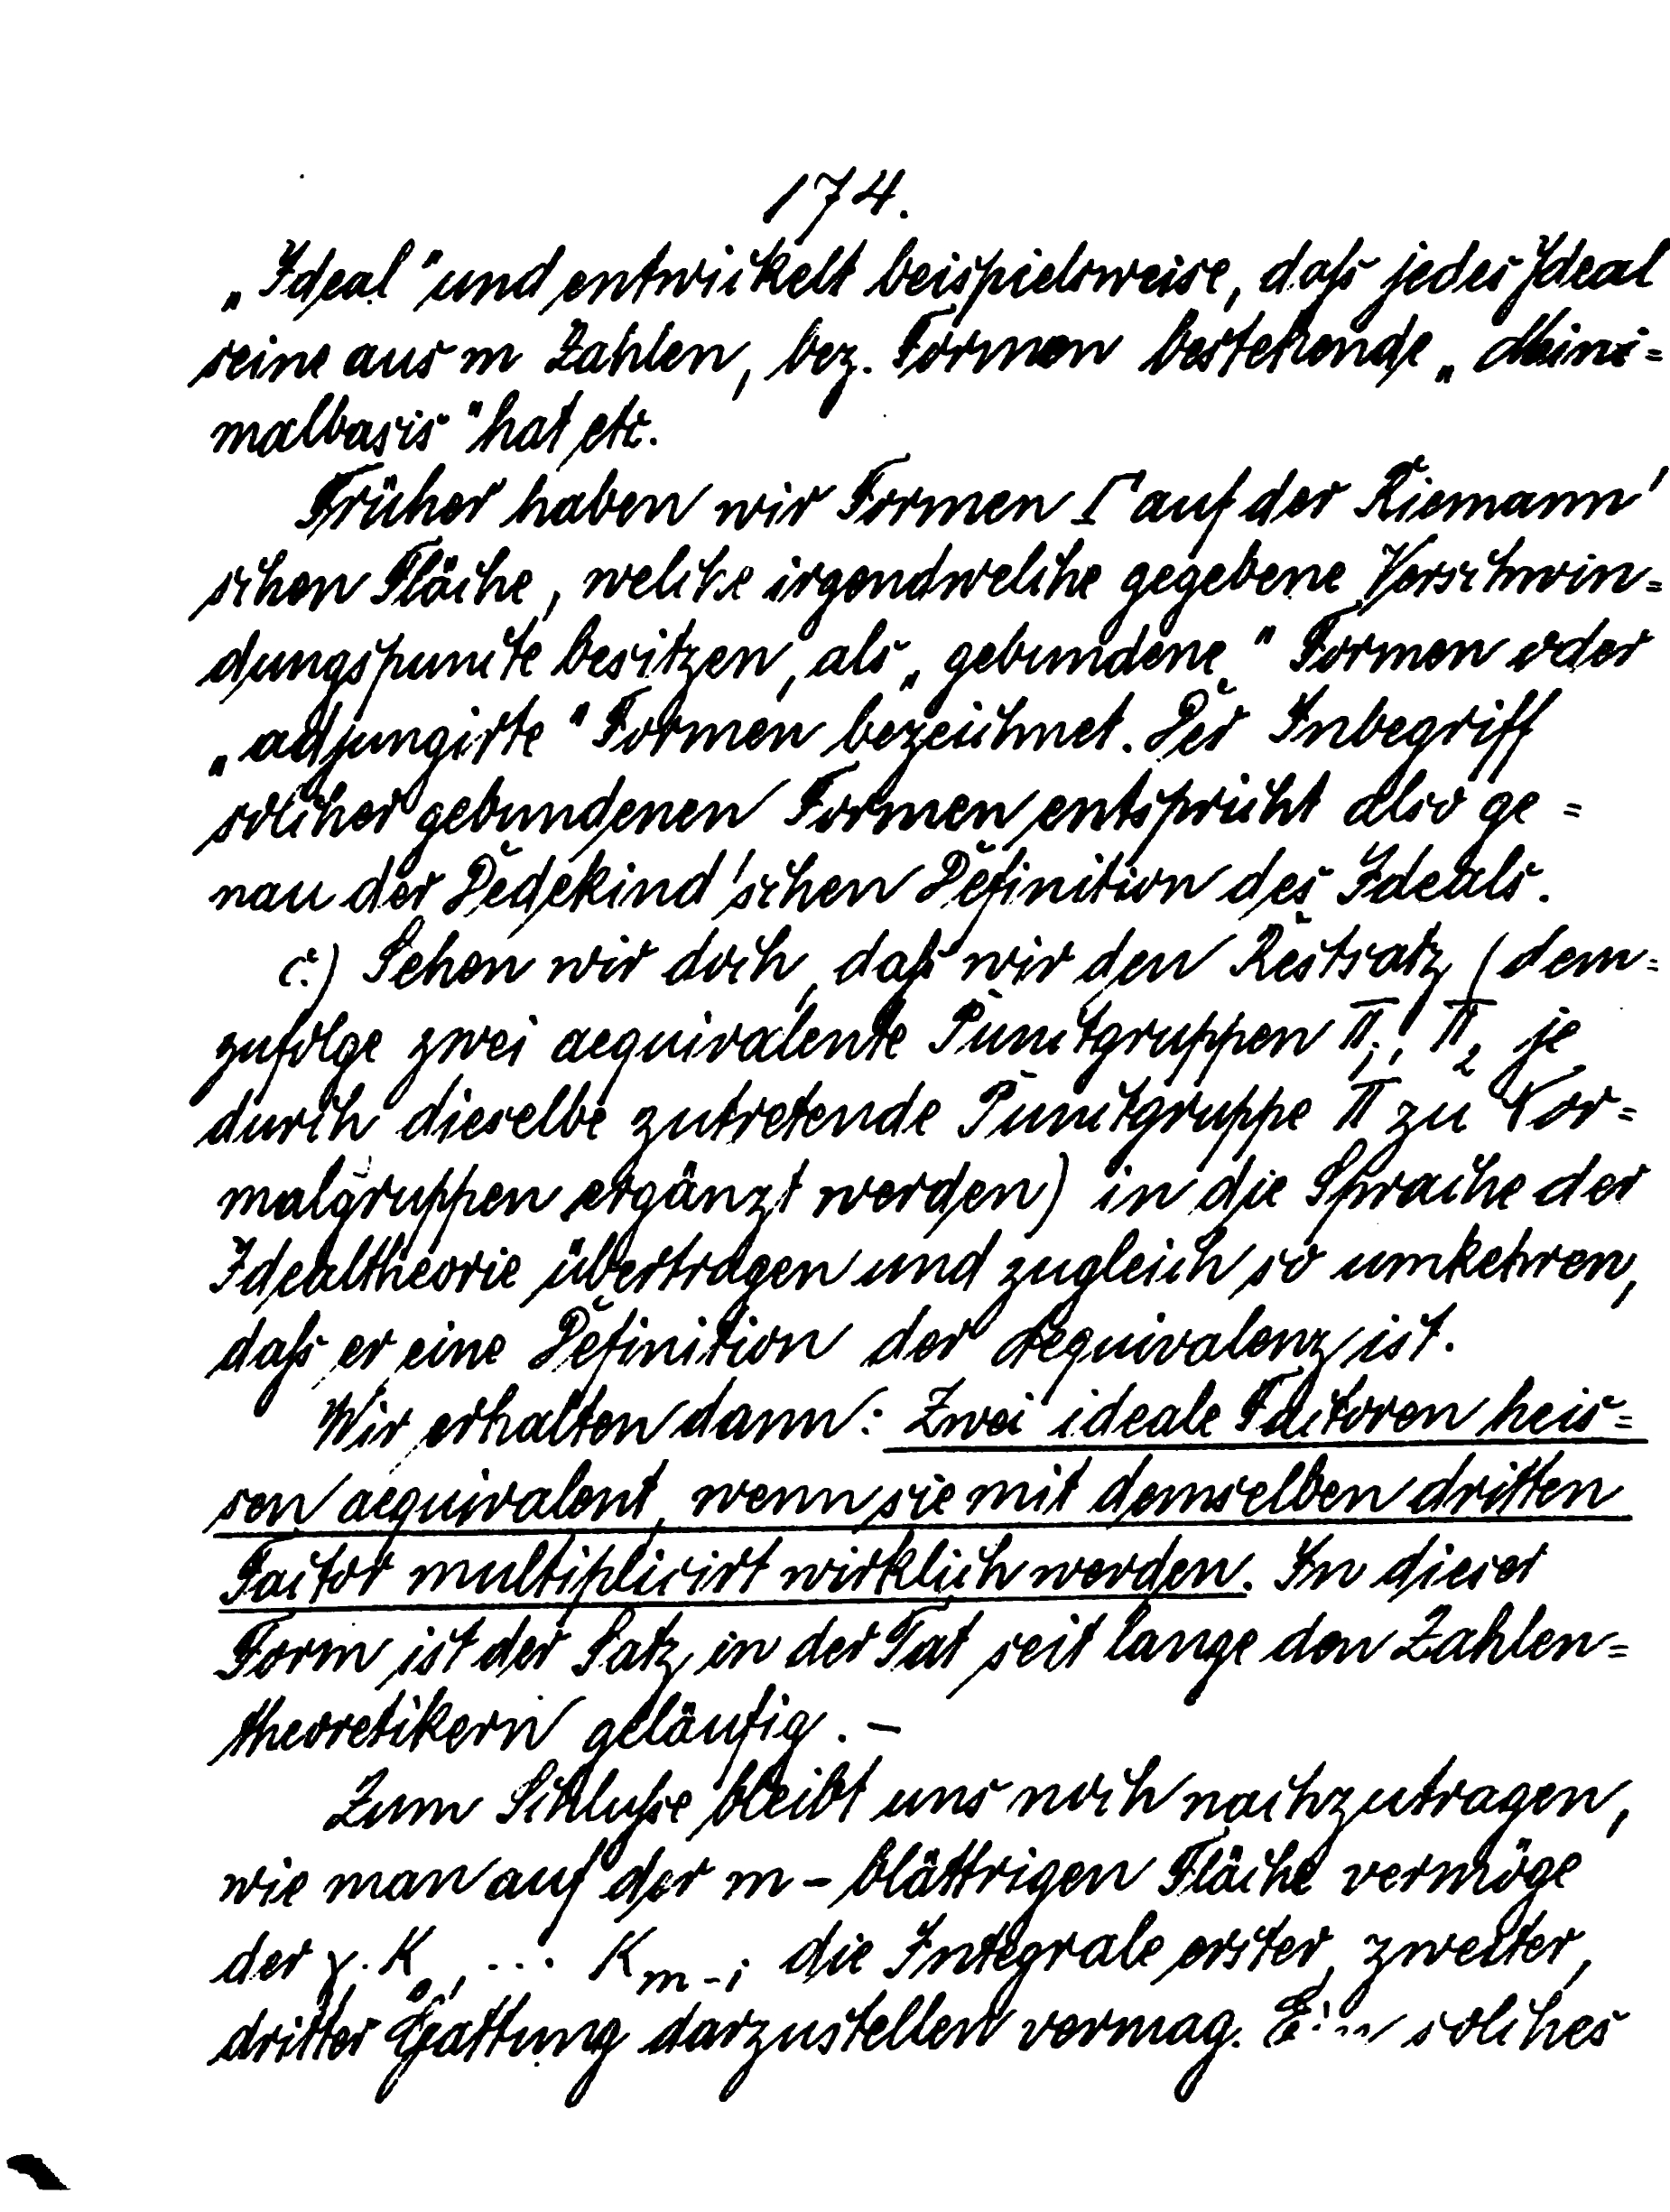 174.
„Ideal" und entwickelt beispielsweise, daß jedes Ideal
seine aus m Zahlen, bez. Formen bestehende „Mini=
malbasis" hat etc.
Früher haben wir Formen Γ auf der Riemann'
schen Fläche, welche irgendwelche gegebene Verschwin=
dungspuncte besitzen, als „gebundene" Formen oder
„adjungirte" Formen bezeichnet. Der Inbegriff
solcher gebundenen Formen entspricht also ge=
nau der Dedekind'schen Definition des Ideals.
c.) Sehen wir doch, daß wir den Restsatz (dem=
zufolge zwei aequivalente Punctgruppen Π₁, Π₂ je
durch dieselbe zutretende Punctgruppe Π zu Nor=
malgruppen ergänzt werden) in die Sprache der
Idealtheorie übertragen und zugleich so umkehren,
daß er eine Definition der Aequivalenz ist.
Wir erhalten dann: Zwei ideale Factoren heis=
sen aequivalent, wenn sie mit demselben dritten
Factor multiplicirt wirklich werden. In dieser
Form ist der Satz in der Tat seit lange den Zahlen=
theoretikern geläufig. –
Zum Schluße bleibt uns noch nachzutragen,
wie man auf der m-blättrigen Fläche vermöge
der γ. K₀, ... Kₘ₋₁ die Integrale erster, zweiter,
dritter Gattung darzustellen vermag. Ein solches